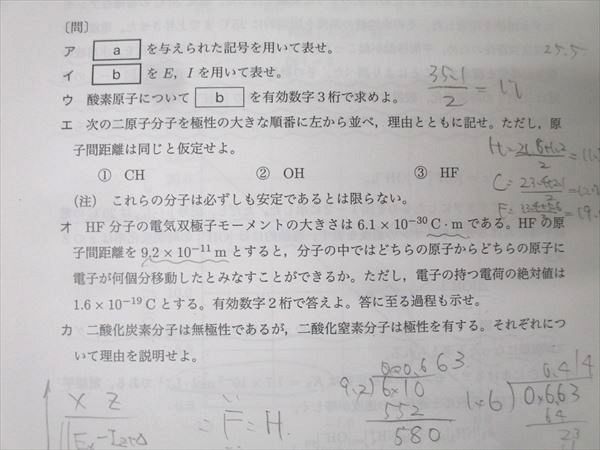 〔問〕
ア a を与えられた記号を用いて表せ。
イ b を E, I を用いて表せ。
ウ 酸素原子について b を有効数字3桁で求めよ。
エ 次の二原子分子を極性の大きな順番に左から並べ，理由とともに記せ。ただし，原
子間距離は同じと仮定せよ。
① CH ② OH ③ HF
(注) これらの分子は必ずしも安定であるとは限らない。
オ HF 分子の電気双極子モーメントの大きさは 6.1 × 10⁻³⁰ C・m である。HF の原
子間距離を 9.2 × 10⁻¹¹ m とすると，分子の中ではどちらの原子からどちらの原子に
電子が何個分移動したとみなすことができるか。ただし，電子の持つ電荷の絶対値は
1.6 × 10⁻¹⁹ C とする。有効数字2桁で答えよ。答に至る過程も示せ。
カ 二酸化炭素分子は無極性であるが，二酸化窒素分子は極性を有する。それぞれにつ
いて理由を説明せよ。
25.5
35.1
2
= 17
2
C=
2
F=
0.663
9.2
552
580
0.414
0.663
64
23
X Z
F=H.